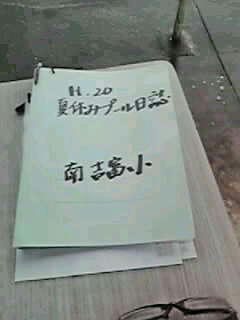 H.20
夏休みプール日誌
南吉富小